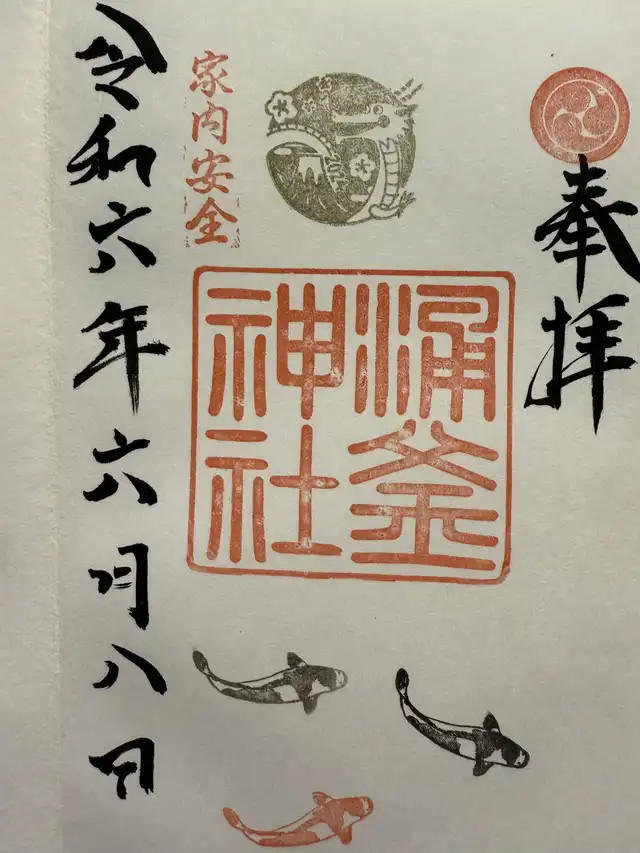 奉拝
涌釜
神社
2024
家内安全
令和六年六月八日